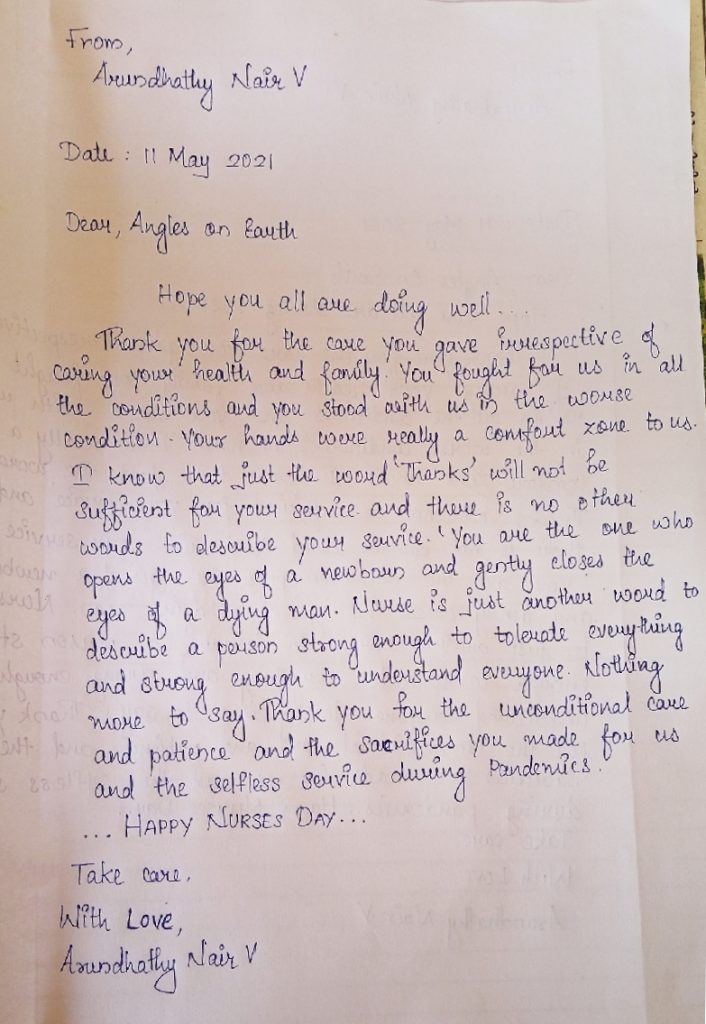 From,
Arundhathy Nair V
Date : 11 May 2021
Dear, Angles on Earth
Hope you all are doing well...
Thank you for the care you gave irrespective of
caring your health and family. You fought for us in all
the conditions and you stood with us in the worse
condition. Your hands were really a comfort zone to us.
I know that just the word 'Thanks' will not be
sufficient for your service and there is no other
words to describe your service. 'You are the one who
opens the eyes of a newborn and gently closes the
eyes of a dying man. Nurse is just another word to
describe a person strong enough to tolerate everything
and strong enough to understand everyone. Nothing
more to say. Thank you for the unconditional care
and patience and the sacrifices you made for us
and the selfless service during Pandemics.
... HAPPY NURSES DAY...
Take care.
With Love,
Arundhathy Nair V